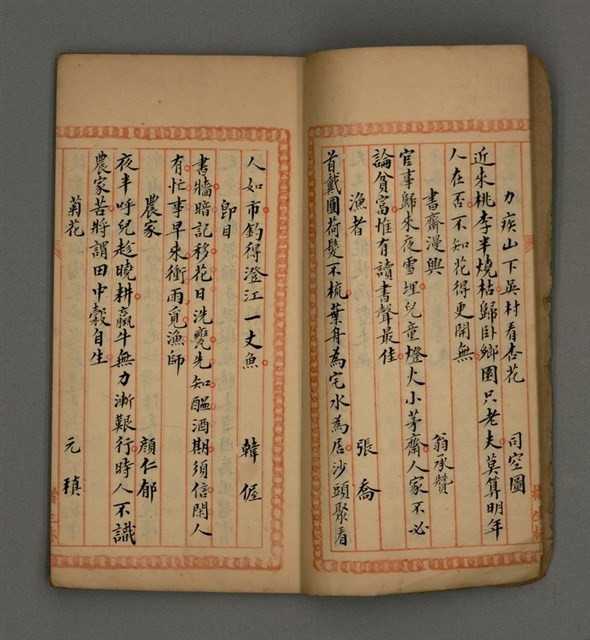 力疾山下吳村看杏花 司空圖
近來桃李半燒枯歸卧鄉園只老夫莫算明年
人在否不知花得更開無
書齋漫興 翁承贊
官事歸來夜雪埋兒童燈火小茅齋人家不必
論貧富惟有讀書聲最佳
漁者 張喬
首戴圓荷髮不梳葉舟為宅水為居沙頭聚看
人如市釣得澄江一丈魚
即目 韓偓
書牆暗記移花日洗甕先知醞酒期須信閑人
有忙事早來衝雨覓漁師
農家 顏仁郁
夜半呼兒趁曉耕羸牛無力漸艱行時人不識
農家苦將謂田中穀自生
菊花 元稹